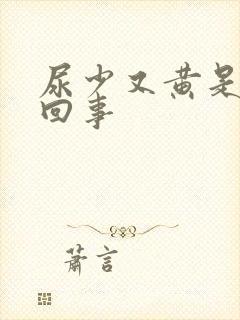 尿少又黄是
回事
萧言